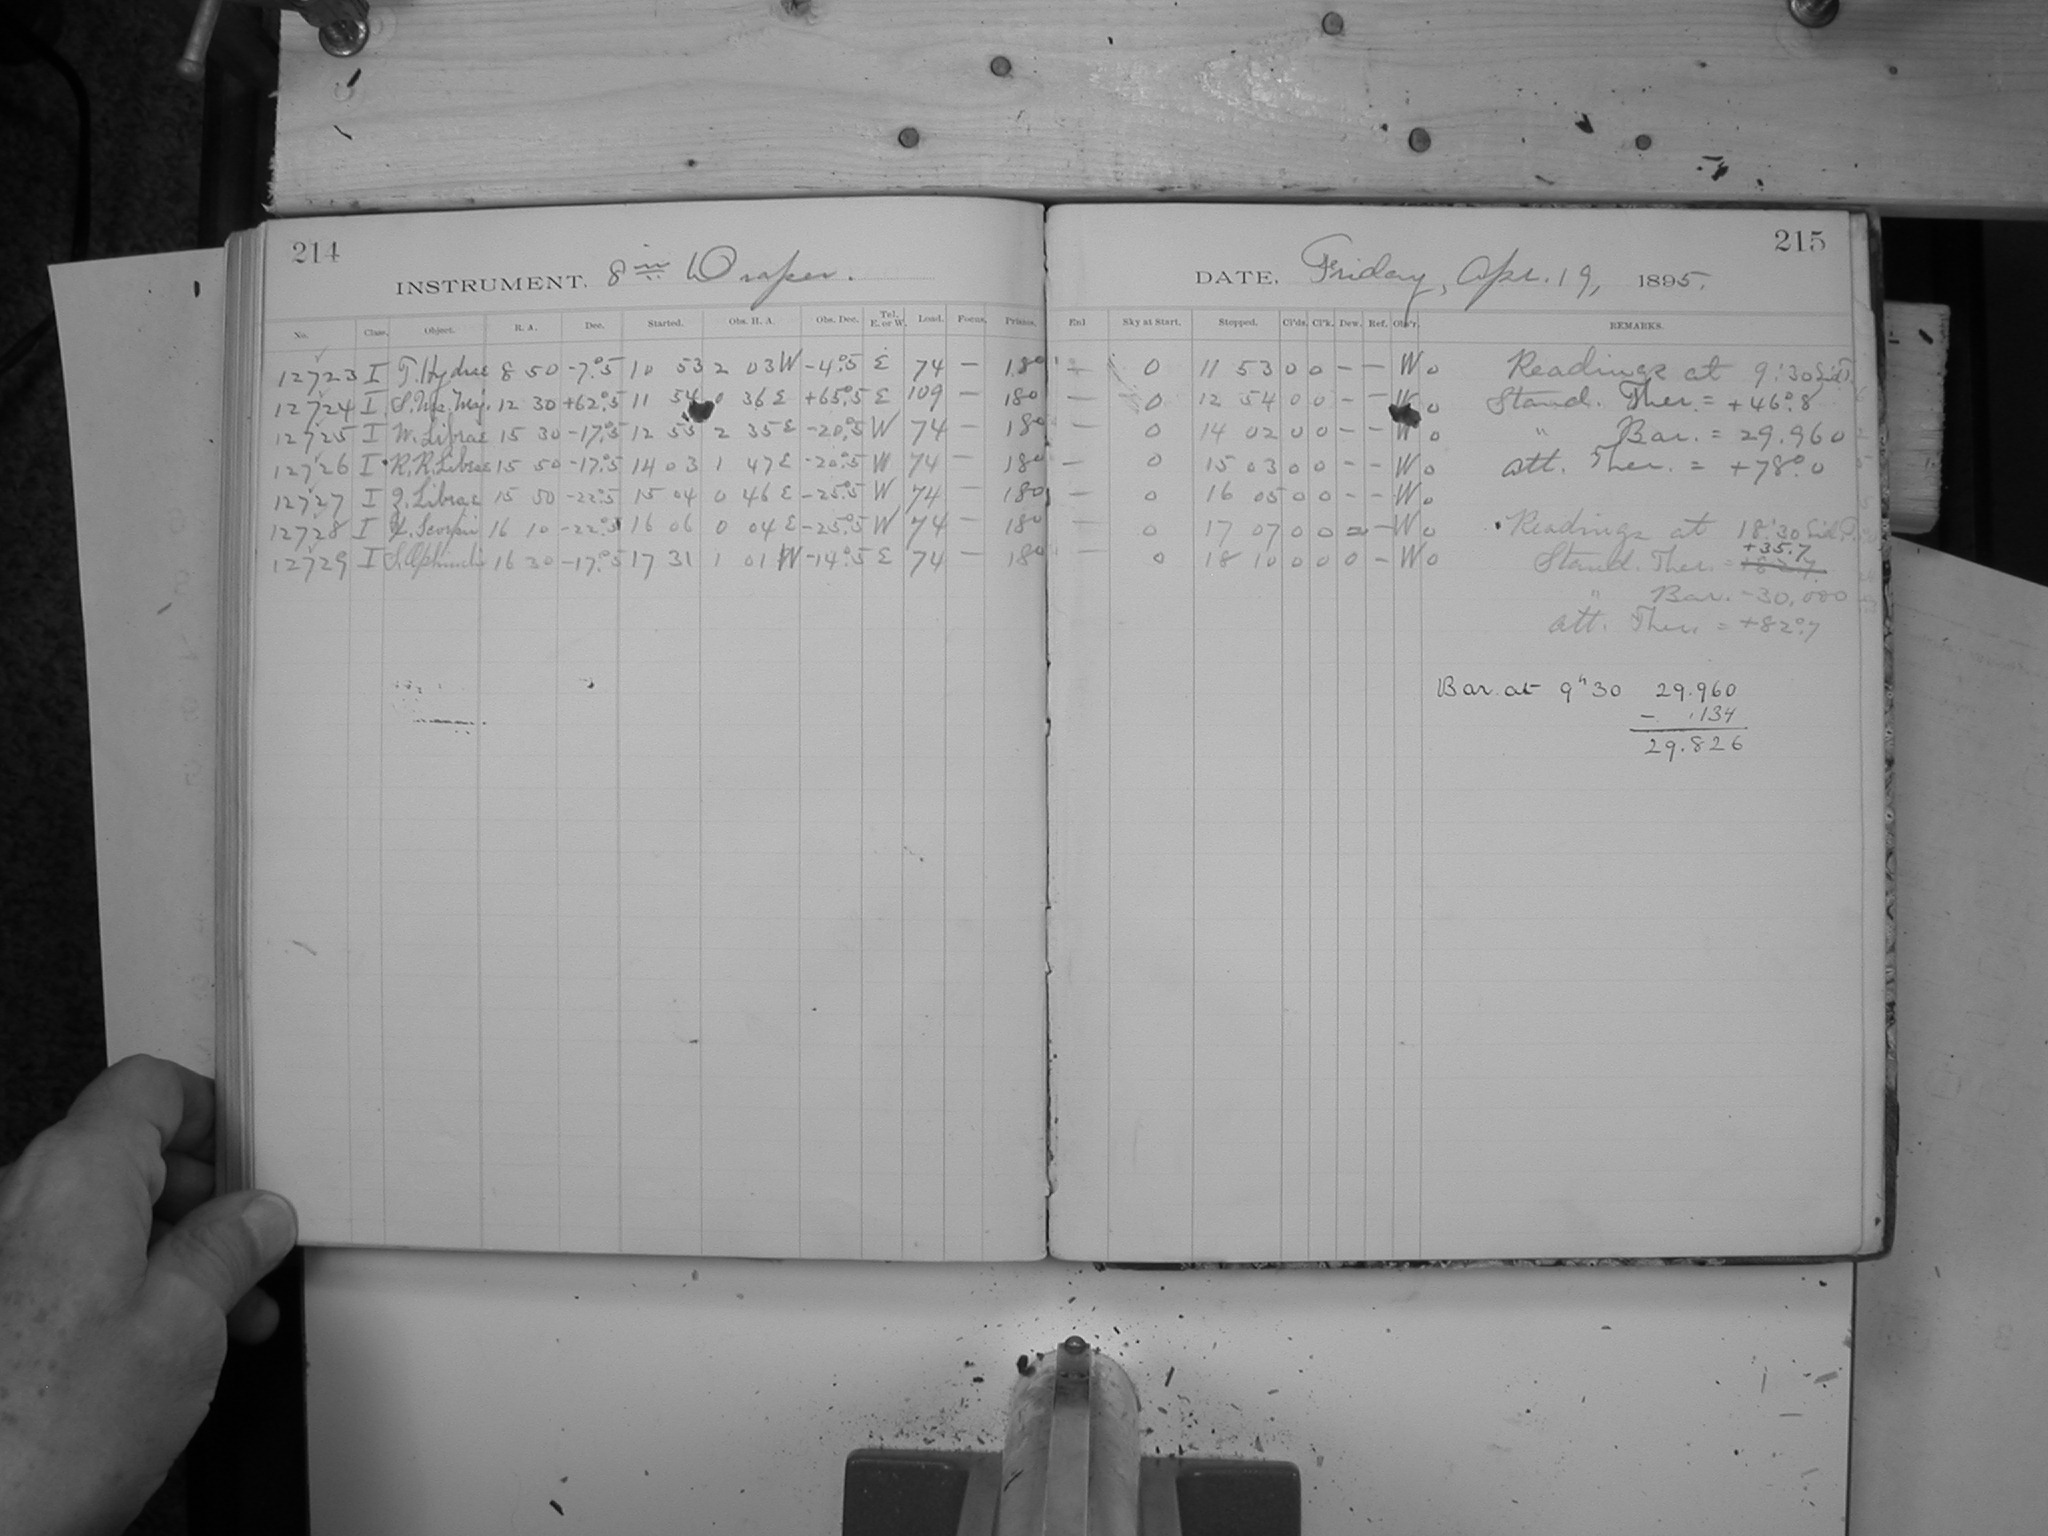 214
INSTRUMENT. 8 in Draper.
No. Class. Object. R. A. Dec. Started. Obs. H. A. Obs. Dec. Tel. E. or W. Load. Focus. Prisms.
12723 I T. Hydrae 8 50 -7°.5 10 53 2 03 W -4°.5 E 74 — 180
12724 I S. Urs. Maj. 12 30 +62°.5 11 54 0 36 E +65°.5 E 109 — 180
12725 I W. Librae 15 30 -17°.5 12 53 2 35 E -20°.5 W 74 — 180
12726 I R.R. Librae 15 50 -17°.5 14 03 1 47 E -20°.5 W 74 — 180
12727 I Z. Librae 15 50 -22°.5 15 04 0 46 E -25°.5 W 74 — 180
12728 I Scorpii 16 10 -22°.5 16 06 0 04 E -25°.5 W 74 — 180
12729 I S. Ophiuchi 16 30 -17°.5 17 31 1 01 W -14°.5 E 74 180
215
DATE, Friday, Apr. 19, 1895.
Enl Sky at Start. Stopped. Cl'ds. Cl'k. Dew. Ref. Obs'r. REMARKS.
— 0 11 53 0 0 – – W o Readings at 9:30 Sid. T.
— 0 12 54 0 0 – – W o Stand. Ther. = +46°.8
— 0 14 02 0 0 – – W o " Bar. = 29.960
— 0 15 03 0 0 – – W o Att. Ther. = +78°.0
— 0 16 05 0 0 – – W o
— 0 17 07 0 0 2 – W o Readings at 18:30 Sid. T.
+35.7
— 0 18 10 0 0 0 – W o Stand. Ther. = +82.7
" Bar. - 30.000
Att. Ther. = +82°.7
Bar. at 9h 30 29.960
– .134
29.826